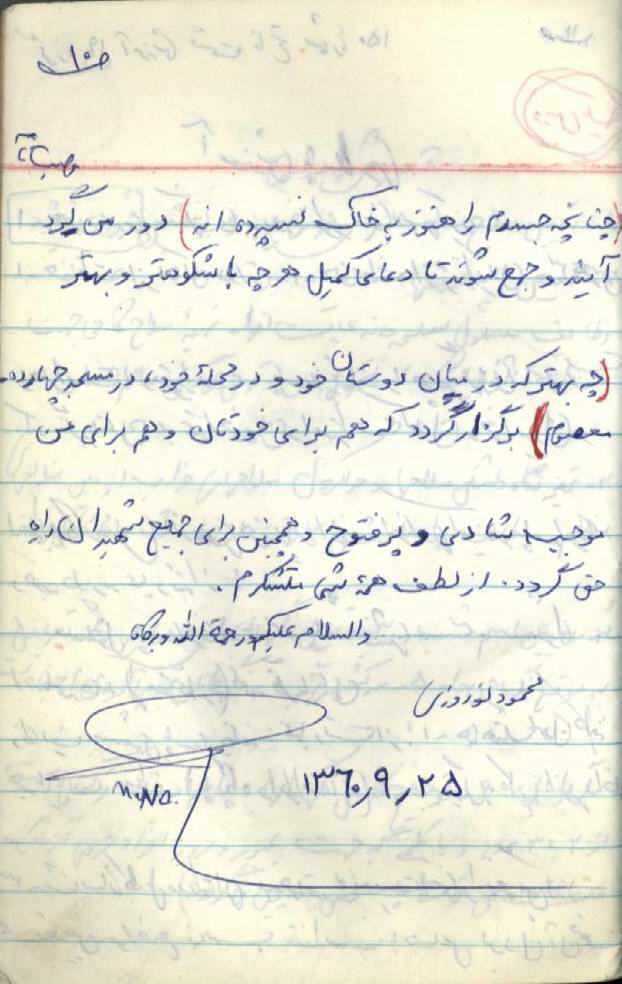 ۱۰
(چنانچه جسدم را هنوز به خاک نسپرده اند) دور هم گرد
آیند و جمع شوند تا دعای کمیل هر چه با شکوهتر و بهتر
(چه بهتر که در میان دوستان خود و در محلهٔ خود، در مسجد چهارده
معصوم) برگزار گردد که هم برای خودتان و هم برای من
موجب شادی و پرفتوح و همچنین برای جمیع شهیدان راه
حق گردد. از لطف همهٔ شما متشکرم.
والسلام علیکم و رحمة الله و برکاته
محمود نوروزی
۱۳۶۰٫۹٫۲۵
M.No.